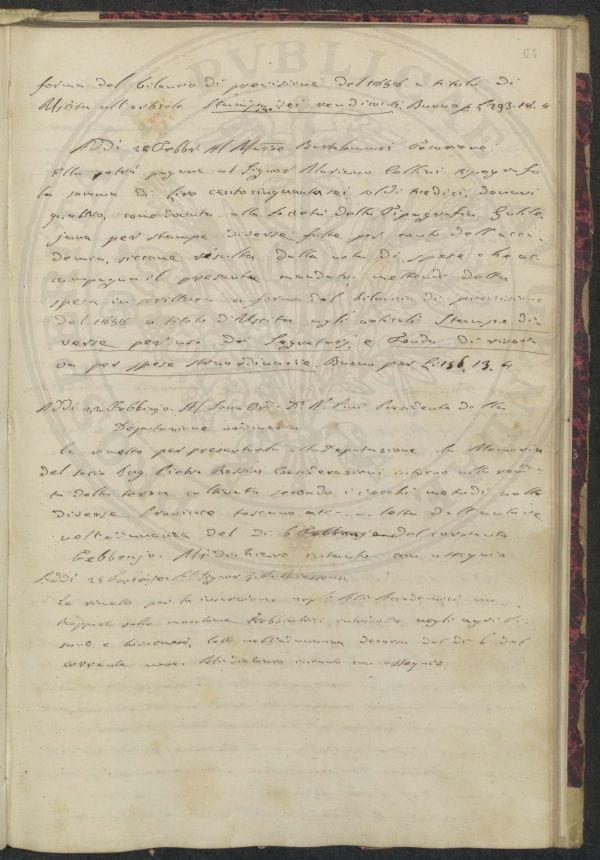 64
forma del bilancio di previsione del 1856 a titolo di
Uscita all'articolo Stampa dei rendiconti. Buono p £ 293.18.4
Addi 22 Febbr. Al Marse Bartolommei Tesoriere
Ella potrà pagare al Signor Mariano Cellini tipografo
la somma di lire centocinquantasei soldi tredici, denari
quattro, come dovuta alla Società della Tipografia Galile-
jana per stampe diverse fatte per conto dell'acca-
demia, siccome resulta dalla nota di spese che ac-
compagna il presente mandato, mettendo detta
spesa in scrittura a forma del bilancio di previsione
del 1856 a titolo d'Uscita agli articoli Stampe di-
verse per uso dei Segretarj, e Fondo di riser-
va per spese straordinarie. Buono per L: 156. 13. 4
Addi 22 Febbrajo. Al Socio Ord. Dr Presidente della
Deputazione ordinaria
Le rimetto per presentarla alla Deputazione la Memoria
del socio Ing. Pietro Rossini Considerazioni intorno alla rendi-
ta della terra coltivata secondo i vecchi metodi nelle
diverse Provincie toscane etc. letta dall'autore
nell'adunanza del dì 6 Febbrajo del corrente
Febbrajo. Mi dichiaro intanto con ossequio
Addi 28 Febbrajo Al Signor
Le rimetto per la inserzione negli Atti Accademici un
Rapporto sulla macchina Trebbiatrice
letto nell'adunanza decorsa del dì 6 del
corrente mese. Mi dichiaro intanto con ossequio